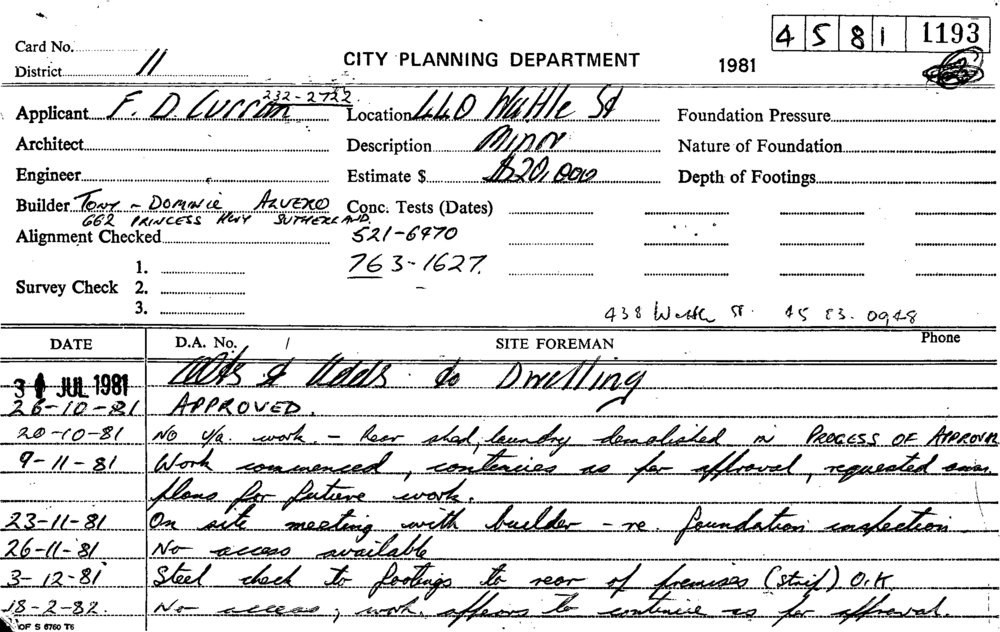 4 5 8 1 1193
Card No.
CITY PLANNING DEPARTMENT 1981
District 11
232-2722
Applicant F. D. Curran Location 440 Wattle St Foundation Pressure
Architect Description Minor Nature of Foundation
Engineer Estimate $ $20,000 Depth of Footings
Builder Tony - Dominic Conc. Tests (Dates)
662 PRINCESS HWY SUTHERLAND.
Alignment Checked 521-6970
1. 763-1627.
Survey Check 2.
3. 438 Wattle St. 45 83. 0948
DATE D.A. No. / SITE FOREMAN Phone
JUL 1981 Alts & Adds to Dwelling
26-10-81 APPROVED.
20-10-81 NO work. - Rear shed, laundry demolished in PROGESS OF APPROVAL
9-11-81 Work commenced, contenies as per approval, requested
plans for future work.
23-11-81 On site meeting with builder - re. foundation inspection
26-11-81 No access available
3-12-81 Steel check to footings to rear of premises (strip) O.K
18-2-82. No access, work appears to continue as per approval.
OF S 6760 T6